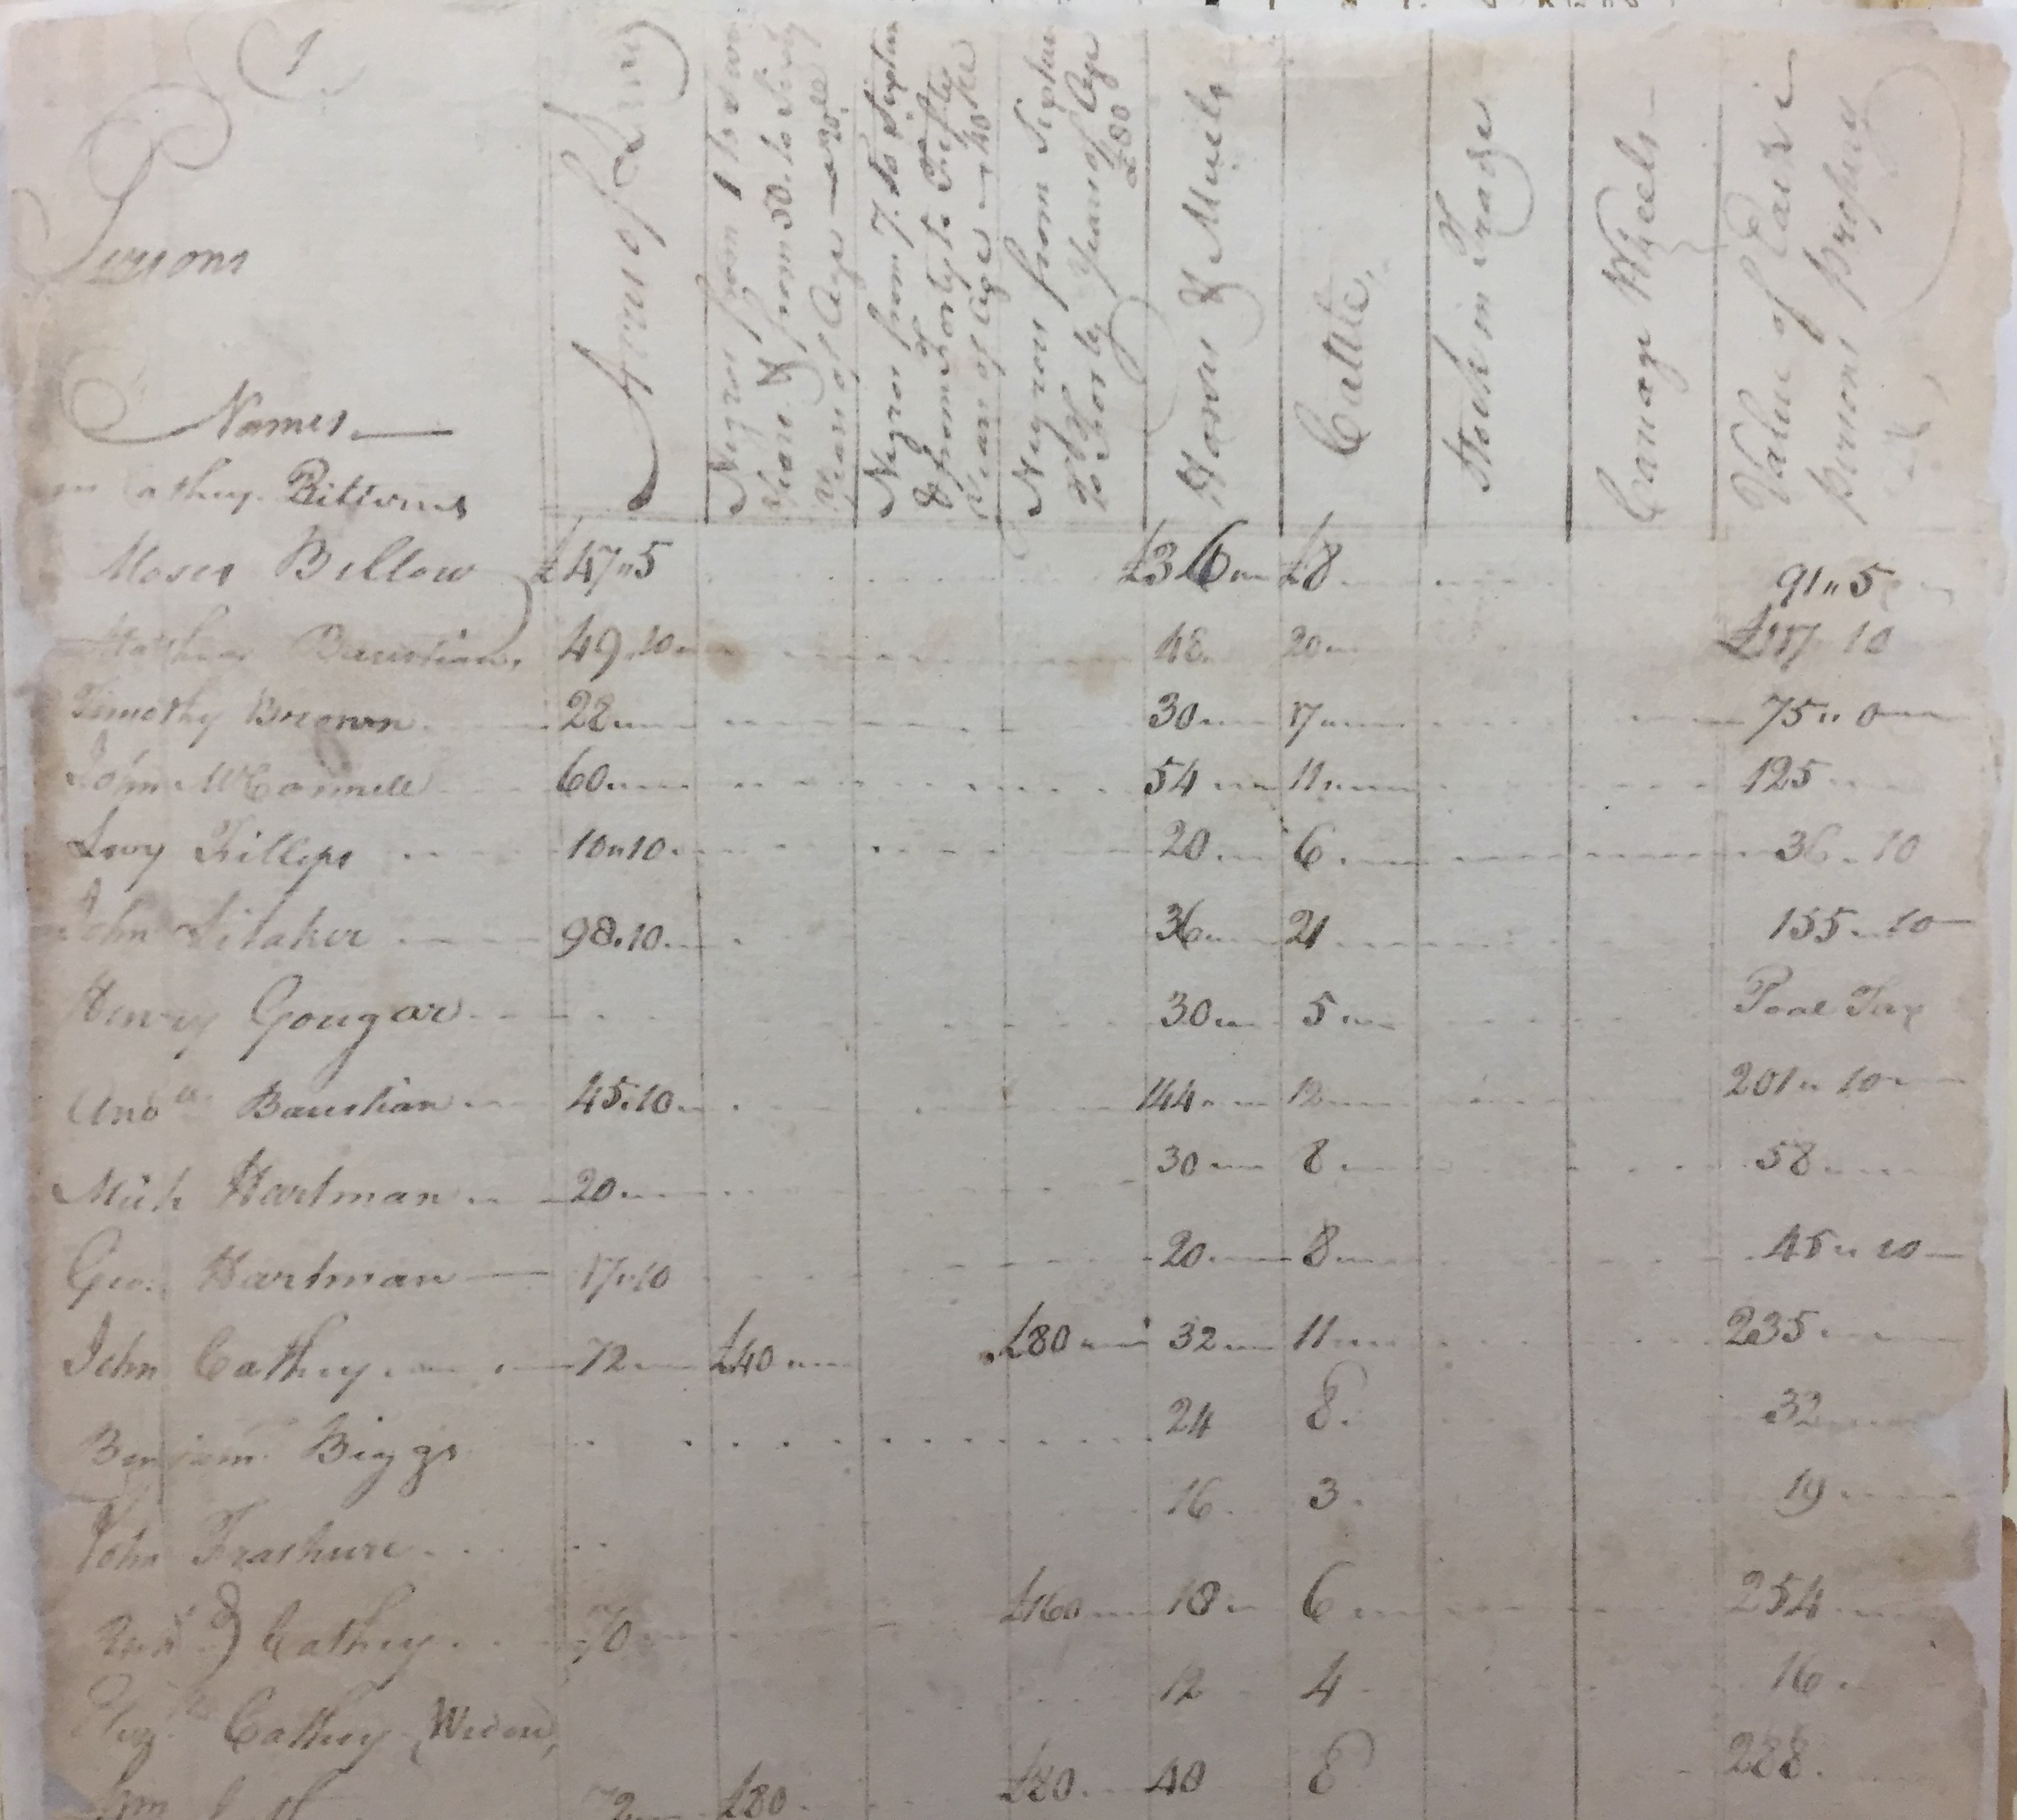 1
Persons
Names
Acres of Land
Negros from 1 to Seven
Years & from 50 to Sixty
Years of Age
Negros from 7. to Sixteen
& from Forty to Fifty
Years of Age 40
Negroes from Sixteen
to Forty Years of Age
£80
Horses & Muels
Cattle,
Stock in Trade
Carriage Wheels
Value of Each
persons property
Cathey
Moses Bellow £47"5 £36 £8 91"5
Baustian, 49.10 48 20 10
Timothy Brown 28 30 17 75"0
John McConnell 60 54 11 125
Levy Fillips 10"10 20 6 36.10
John Litaker 98.10 36 21 155 10
Henry Gougar 30 5 Poal Tax
Andw Baustian 45.10 144 12 201" 10
Mich Hartman 20 30 8 58
Geo. Hartman 17"10 20 8 45" 10
John Cathey 72 £40 £80 32 11 235
Benjam. Biggs 24 8. 32
John Frashure 16 3. 19
Cathey 70 £160 18 6 254
Cathey (Widow, 12 4 16
72 £80 £80 40 8 288.